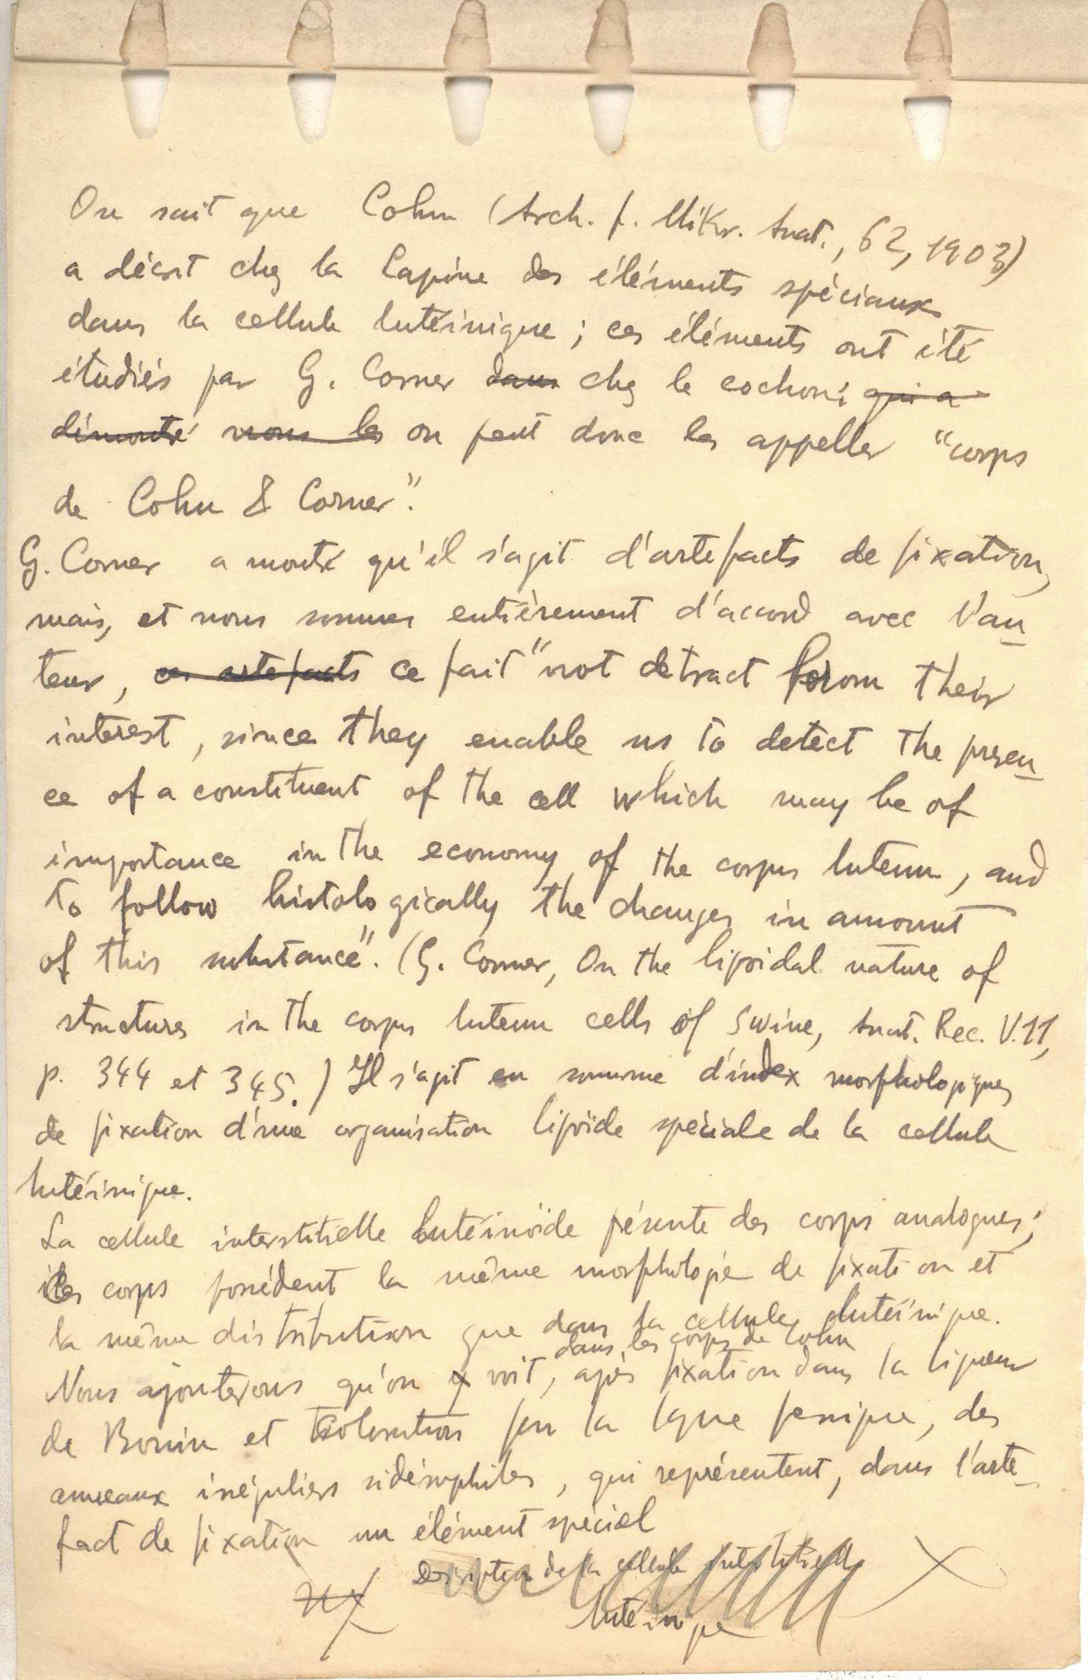 On sait que Cohn (Arch. f. Mikr. Anat., 62, 1903)
a décrit chez la lapine des éléments spéciaux
dans la cellule lutéinique ; ces éléments ont été
étudiés par G. Corner dans chez le cochon ; qui a
démontré nous les on peut donc les appeller "corps
de Cohn & Corner".
G. Corner a montré qu'il s'agit d'artefacts de fixation,
mais, et nous sommes entièrement d'accord avec l'au-
teur, ces artefacts ce fait "not detract from their
interest, since they enable us to detect the presen-
ce of a constituent of the cell which may be of
importance in the economy of the corpus luteum, and
to follow histologically the changes in amount
of this substance". (G. Corner, On the lipoidal nature of
structures in the corpus luteum cells of swine, Anat. Rec. V.11,
p. 344 et 345.) Il s'agit en somme d'index morphologiques
de fixation d'une organisation lipoïde spéciale de la cellule
lutéinique.
La cellule interstitielle lutéinoïde présente des corps analogues ;
les corps possèdent la même morphologie de fixation et
la même distribution que dans la cellule lutéinique.
dans les corps de Cohn
Nous ajouterons qu'on y voit, après fixation dans la liqueur
de Bouin et coloration par la laque ferrique, des
anneaux irréguliers sidérophiles, qui représentent, dans l'arte-
fact de fixation un élément spécial
Description de la cellule interstitielle
lutéinique